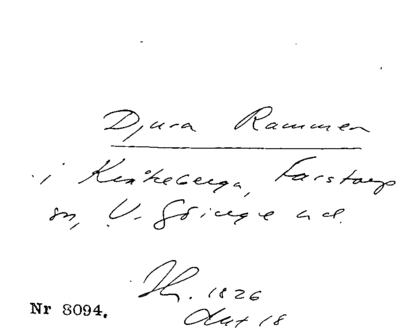 Djura Rammen
i Kråkeberga, Farstorp
sn, V. Göinge hd.
1826
Nr 8094.